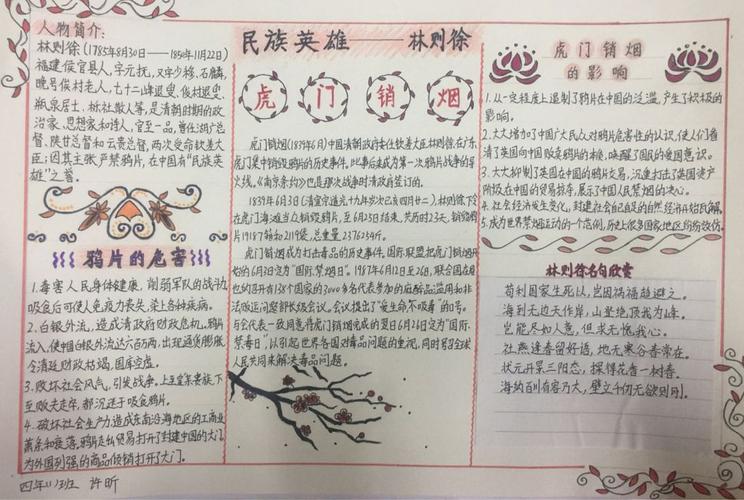 人物简介:
林则徐(1785年8月30日——1850年11月22日)
福建侯官县人,字元抚,又字少穆、石麟,
晚号俟村老人,七十二峰退叟,俟村退叟,
瓶泉居士,栎社散人等,是清朝时期的政
治家、思想家和诗人,官至一品,曾任湖广总
督、陕甘总督和云贵总督,两次受命钦差大
臣;因其主张严禁鸦片,在中国有“民族英
雄”之誉。
鸦片的危害
1.毒害人民身体健康,削弱军队的战斗力,
吸食后可使人免疫力丧失,染上各种疾病。
2.白银外流,造成清政府财政危机。鸦片
流入,使中国白银外流达六百两,出现通货膨胀,
令清廷财政枯竭,国库空虚。
3.败坏社会风气,引发战争。上至皇亲贵族下
至贩夫走卒,都沉迷于吸食鸦片。
4.破坏社会生产力,造成东南沿海地区的工商业
萧条和衰落,鸦片走出贸易打开了封建中国的大门,
为外国列强的商品倾销打开了大门。
四年11班 许昕
民族英雄——林则徐
虎门销烟
虎门销烟(1839年6月)中国清朝政府委任钦差大臣林则徐,在广东
虎门集中销毁鸦片的历史事件。此事后来成为第一次鸦片战争的导
火线,《南京条约》也是那次战争时清政府签订的。
1839年6月3日(清宣宗道光十九年岁次己亥四月廿二),林则徐下令
在虎门海滩当众销毁鸦片,至6月25日结束,共历时23天,销毁鸦
片19187箱和2119袋,总重量2376254斤。
虎门销烟成为打击毒品的历史事件,国际联盟把虎门销烟开
始的6月3日定为“国际禁烟日”。1987年6月12日至26日,联合国在奥
地利召开有138个国家的3000多名代表参加的麻醉品滥用和非
法贩运问题部长级会议。会议提出了“爱生命不吸毒”的口号。
与会代表一致同意将虎门销烟完成的翌日6月26日定为“国际
禁毒日”,以引起世界各国对毒品问题的重视,同时号召全球
人民共同来解决毒品问题。
虎门销烟
的影响
1.从一定程度上遏制了鸦片在中国的泛滥,产生了积极的
影响。
2.大大增加了中国广大民众对鸦片危害性的认识,使人们看
清了英国向中国贩卖鸦片的本质,唤醒了国民的爱国意识。
3.大大抑制了英国在中国的鸦片交易,沉重打击了英国资产
阶级在中国的贸易掠夺,展示了中国人民禁烟的决心。
4.社会经济发生变化,封建社会自己自足的自然经济开始瓦解。
5.成为世界禁烟运动的一个范例,历史上很多国家地区纷纷效仿。
林则徐名句欣赏
苟利国家生死以,岂因祸福趋避之。
海到无边天作岸,山登绝顶我为峰。
岂能尽如人意,但求无愧我心。
社燕逢春留好语,地无寒谷春常在。
状元开景三阳态,探得花香一树春。
海纳百川有容乃大,壁立千仞无欲则刚。